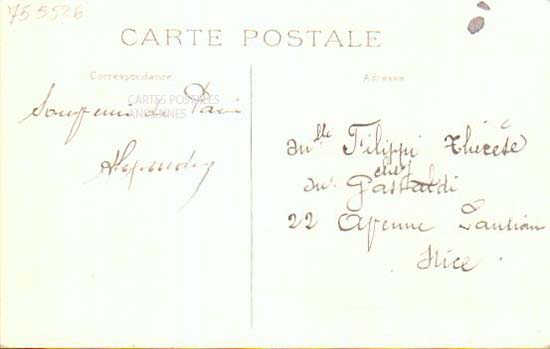 755526
CARTE POSTALE
Correspondance
Adresse
CARTES POSTALES
ANCIENNES
Souvenir de Paris
Mlle Filippi Thérèse
chez
Mr Gastaldi
22 Avenue
Nice